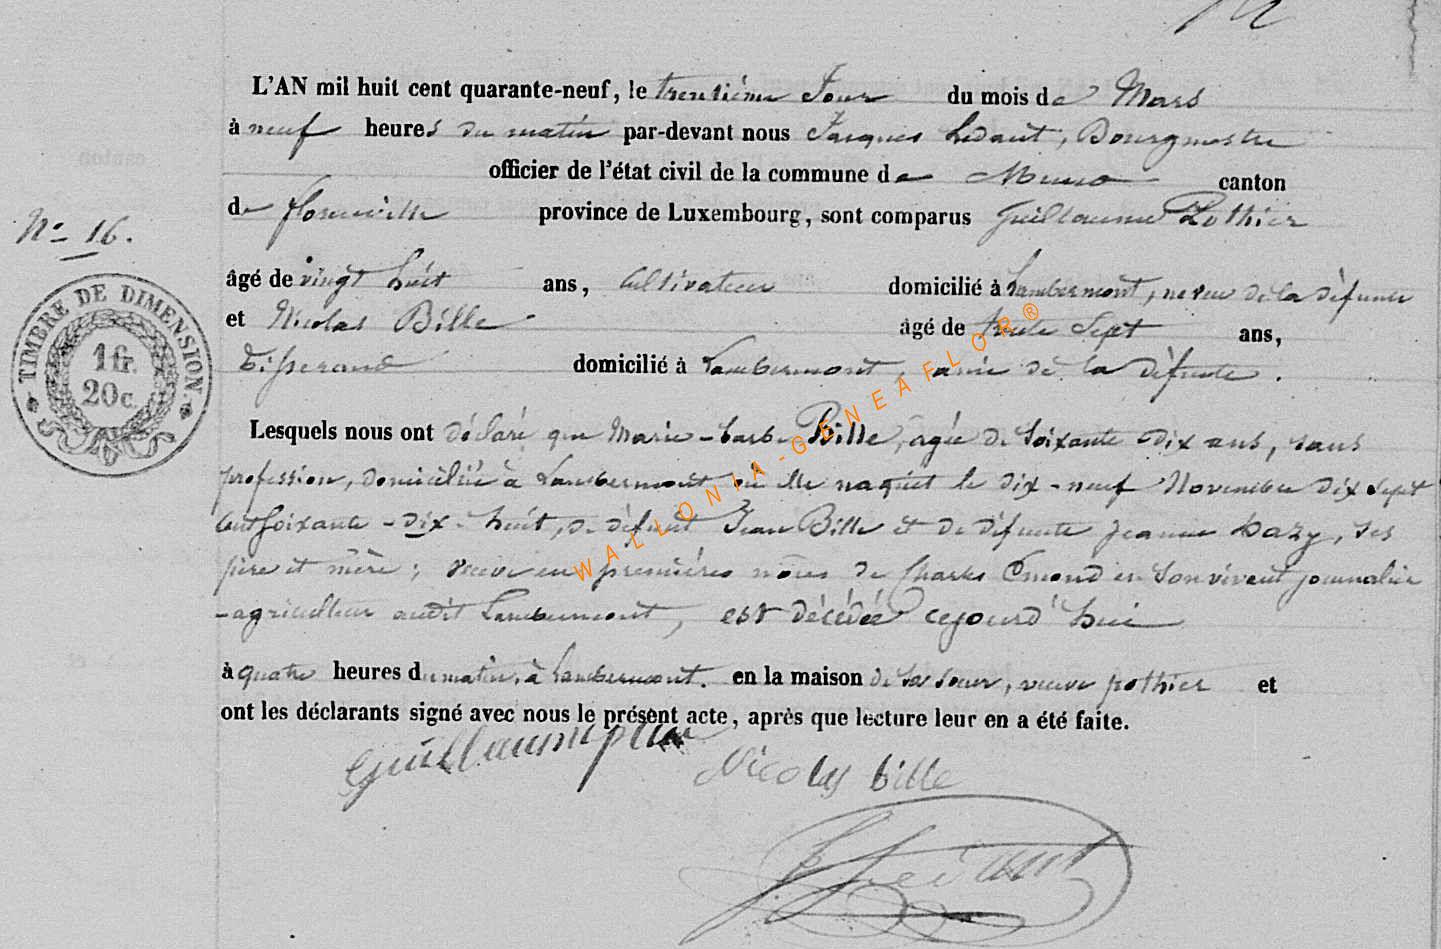 L'AN mil huit cent quarante-neuf, le trentième Jour du mois de Mars
à neuf heures du matin par-devant nous Jacques Ledant, Bourgmestre
officier de l'état civil de la commune de Muno canton
de florenville province de Luxembourg, sont comparus Guillaume Pothier
N° 16.
âgé de vingt huit ans, Cultivateur domicilié à Lambermont, neveu de la défunte
et Nicolas Bille âgé de trente Sept ans,
Tisserand domicilié à Lambermont, amie de la défunte.
TIMBRE DE DIMENSION.
1 fr.
20 c.
Lesquels nous ont déclaré que Marie-barbe Bille, agée de Soixante Dix ans, sans
profession, domiciliée à Lambermont où elle naquit le dix-neuf Novembre Dix Sept
Cent Soixante-dix-huit, de défunt Jean Bille et de défunte jeanne hazy, ses
père et mère; veuve en premières nôces de Charles Emond en Son vivant journalier
-agriculteur audit Lambermont, est décédée cejourd'hui
à quatre heures du matin, à Lambermont. en la maison de sa soeur, veuve pothier et
ont les déclarants signé avec nous le présent acte, après que lecture leur en a été faite.
Guillaume Nicolas bille
Ledant
WALLONIA-GENEAFLOR®